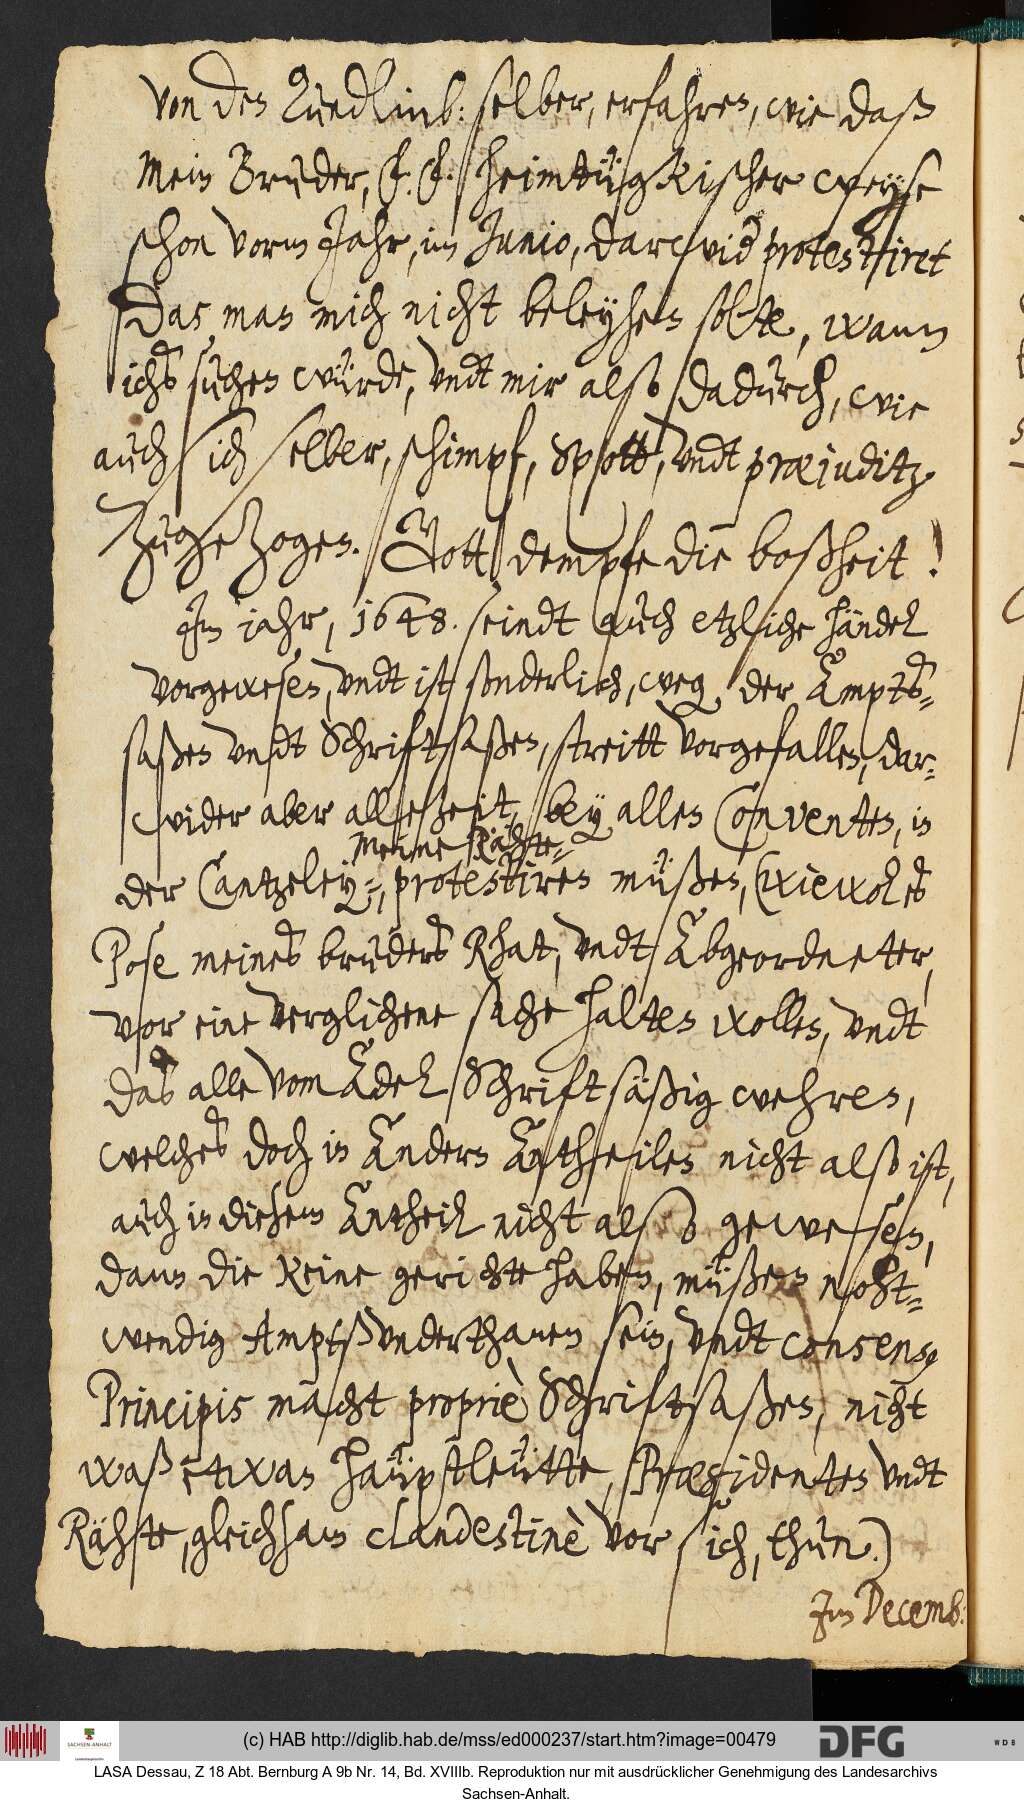 von den Quedlinb: selber, erfahren, wie daß
Mein Bruder, F. F. heimtügkischer weyse
schon vorm Jahr, im Junio, darwid protestiret
Das man mich nicht beleyhen solte, wann
ichs suchen würde, undt mir also dadurch, wie
auch sich selber, schimpf, Spott, undt præjuditz
Zugezogen. Gott dempfe die boßheit!
Im jahr, 1648. seindt auch etzliche händel
vorgewesen, undt ist sonderlich, weg. der Ampts-
saßen undt Schriftsaßen, streitt vorgefallen, dar-
wider aber allezeit, bey allen Conventen, in
Meine Rähte
der Cantzeley, protestiren müßen, (wiewol es
Pose meines bruders Rhat, undt Abgeordneter,
vor eine verglichene sache halten wollen, undt
das alle vom Adel Schriftsäßig wehren,
welches doch in Andern Antheilen nicht also ist,
auch in diesem Antheil nicht also gewesen,
dann die Keine gerichte haben, müßen noht-
wendig Amptßunderthanen sein, undt consens,
Principis macht propriè Schriftsaßen, nicht
waß etwan häuptleütte, Præsidenten undt
Rähte, gleichsam clandestinè vor sich, thun.)
Im Decemb:
(c) HAB http://diglib.hab.de/mss/ed000237/start.htm?image=00479
SACHSEN-ANHALT
DFG
WDB
LASA Dessau, Z 18 Abt. Bernburg A 9b Nr. 14, Bd. XVIIIb. Reproduktion nur mit ausdrücklicher Genehmigung des Landesarchivs
Sachsen-Anhalt.